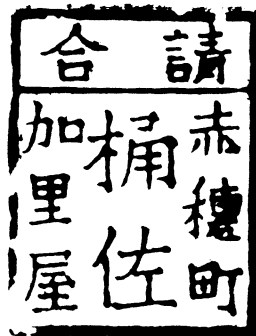 請合
赤穗町
桶佐
加里屋